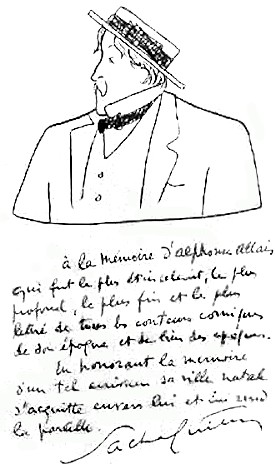 à la mémoire d'alphonse allais
qui fut le plus étincelant, le plus
profond, le plus fin et le plus
lettré de tous les conteurs comiques
de son époque et de bien des époques.
En honorant la mémoire
d'un tel écrivain sa ville natale
s'acquitte envers lui et lui rend
la pareille.
Sacha Guitry